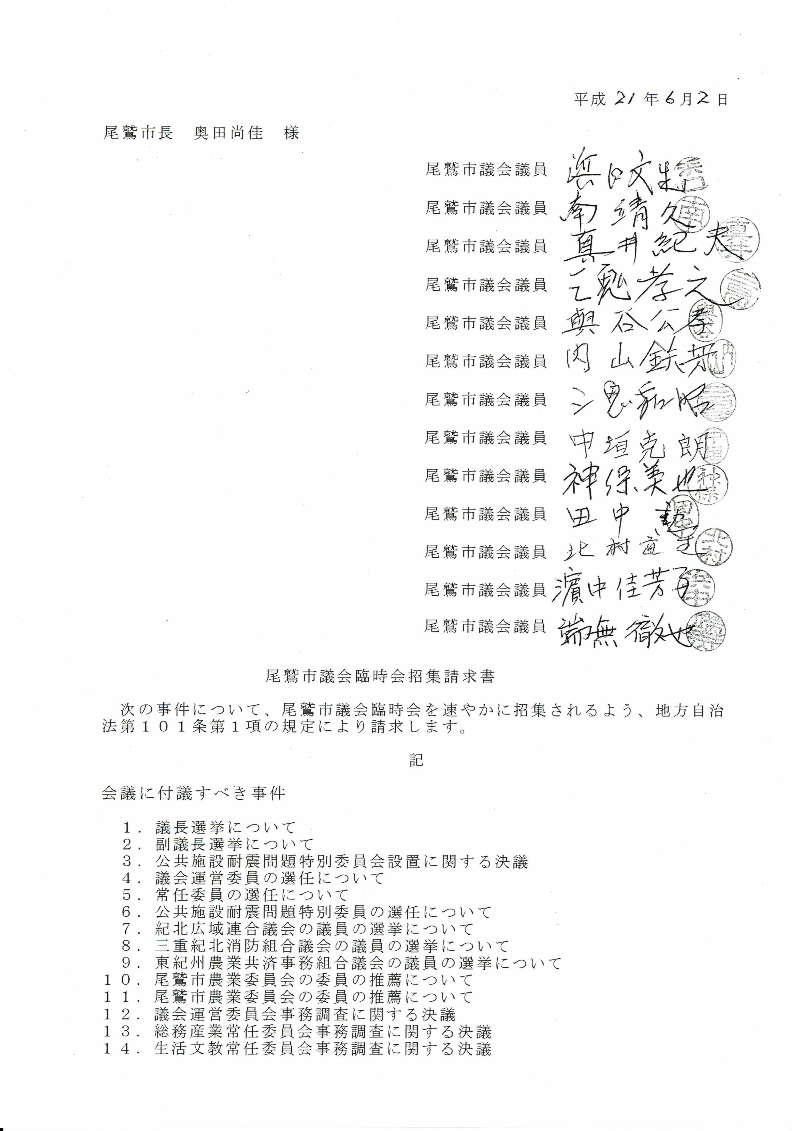 平成 21 年 6 月 2 日
尾鷲市長　奥田尚佳　様
尾鷲市議会議員
尾鷲市議会議員 南 靖久
尾鷲市議会議員 真井紀夫
尾鷲市議会議員 三鬼孝之
尾鷲市議会議員 與谷公孝
尾鷲市議会議員 内山
尾鷲市議会議員 三鬼和昭
尾鷲市議会議員 中垣克朗
尾鷲市議会議員 神保美也
尾鷲市議会議員 田中 勲
尾鷲市議会議員 北村
尾鷲市議会議員 濵中佳芳子
尾鷲市議会議員 端無徹也
尾鷲市議会臨時会招集請求書
次の事件について、尾鷲市議会臨時会を速やかに招集されるよう、地方自治
法第１０１条第１項の規定により請求します。
記
会議に付議すべき事件
１．議長選挙について
２．副議長選挙について
３．公共施設耐震問題特別委員会設置に関する決議
４．議会運営委員の選任について
５．常任委員の選任について
６．公共施設耐震問題特別委員の選任について
７．紀北広域連合議会の議員の選挙について
８．三重紀北消防組合議会の議員の選挙について
９．東紀州農業共済事務組合議会の議員の選挙について
１０．尾鷲市農業委員会の委員の推薦について
１１．尾鷲市農業委員会の委員の推薦について
１２．議会運営委員会事務調査に関する決議
１３．総務産業常任委員会事務調査に関する決議
１４．生活文教常任委員会事務調査に関する決議